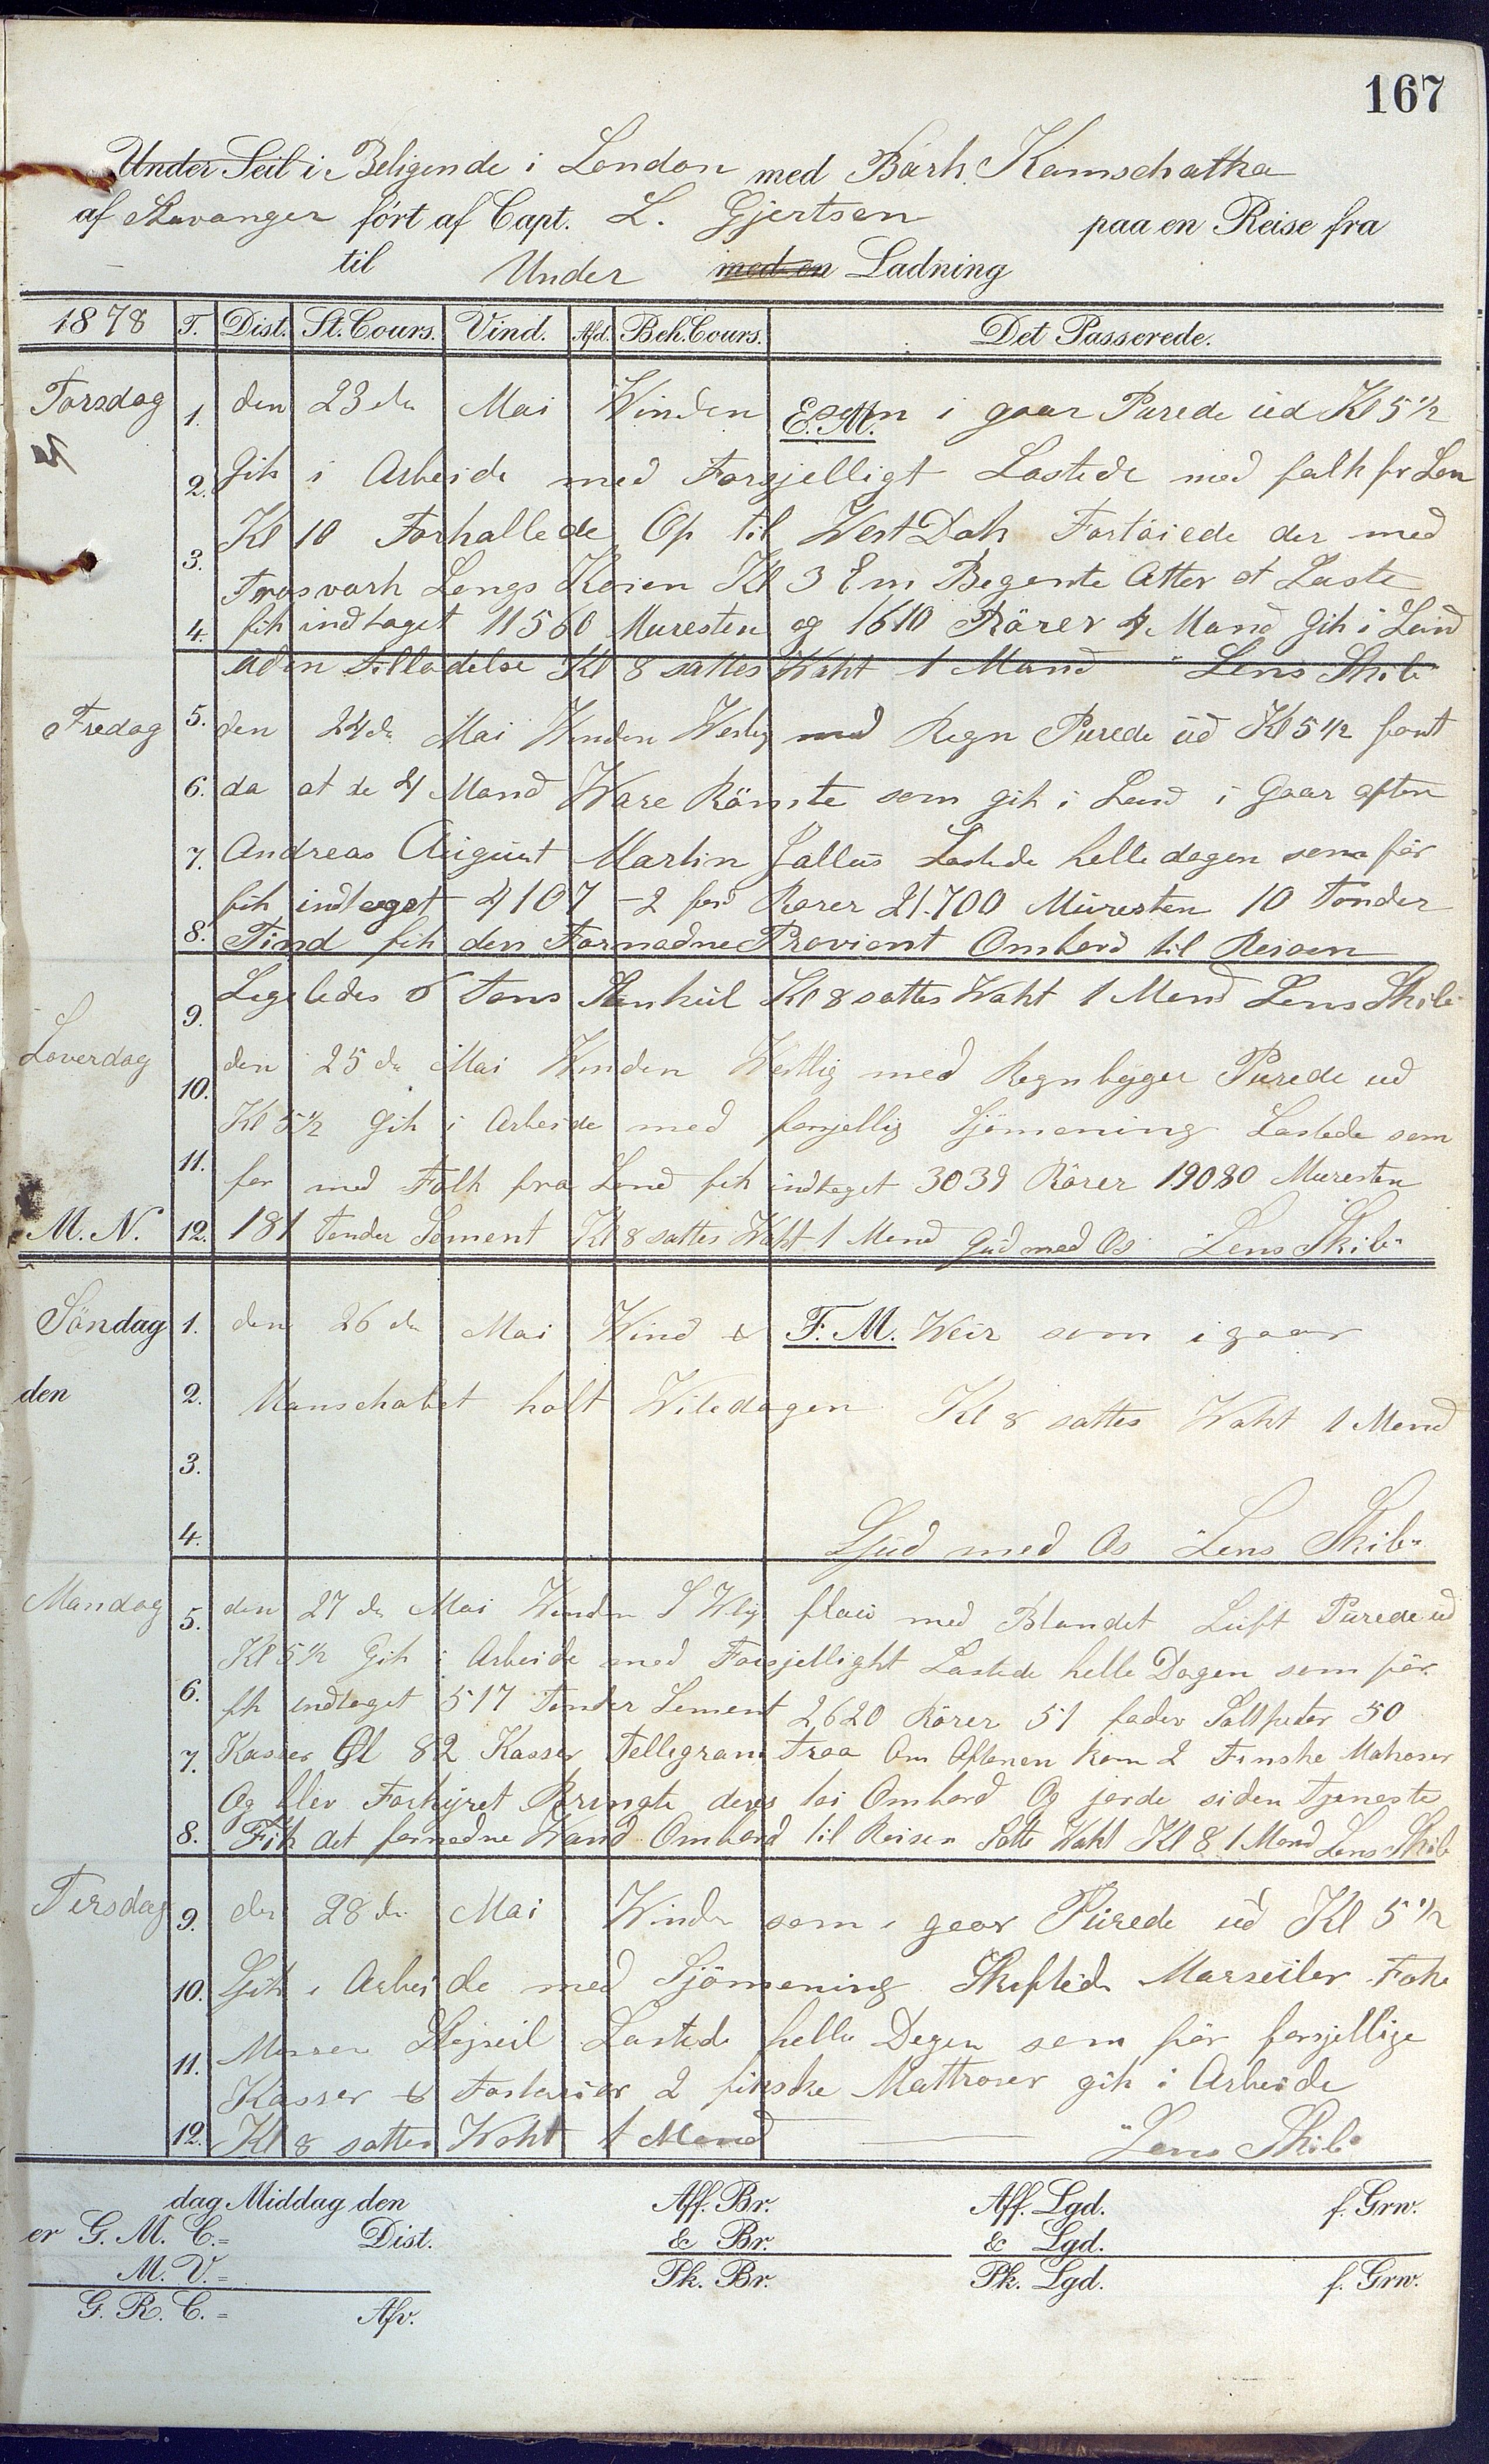 167
Under Seil i Beligende i London med Barh. Kamschatka
af Stavanger ført af Capt. L. Gjertsen paa en Reise fra
til Under med en Ladning
1878 T. Dist. St. Cours. Vind. Afd. Beh. Cours. Det Passerede.
Torsdag 1. den 23 de Mai Winden E.M. som i gaar Purede ud Kl 5½
2. Gik i Arbeide med Forsjelligt Lastede med folk fr Lan
3. Kl 10 Forhallede Op til West Dok Fortöiede der med
Trosvark Langs Kaien Kl 3 Em Begynte Atter at Laste
4. fik indtaget 11560 Muresten og 1610 Rörer 4 Mand Gik i Land
Uden Tilladelse Kl 8 sattes Waht 1 Mand "Lens Skib"
Fredag 5. den 24 de Mai Winden Westlig med Regn Purede ud Kl 5½ fant
6. da at de 4 Mand Ware Römte som gik i Land i Gaar aften
7. Andreas August Martin Jallus Lastede helle dagen som för
fik indtaget 4107 - 2 Rorer 21.700 Muresten 10 Tönder
8. Tind fik den Fornødne Proviant Ombord til Reisen
9. Legeledes 6 Tons Stenkul Kl 8 sattes Waht 1 Mand Lens Skib"
Loverdag 10. den 25 de Mai Winden Westlig med Regnbyger Purede ud
Kl 5½ Gik i Arbeide med forsjellig Sjömening Lastede som
11. for med Folk fra Land fik indtaget 3039 Rörer 19080 Muresten
M. N. 12. 181 Tønder Sement Kl 8 sattes Waht 1 Mand Gud med Os "Lens Skib"
Söndag 1. den 26 de Mai Wind & F. M. Weir som i gaar
den 2. Manschabet holt Wiledagen Kl 8 sattes Waht 1 Mand
3.
4. Gud med Os "Lens Skib"
Mandag 5. den 27 de Mai Winden S Wlig flau med Blandet Luft Purede ud
Kl 5½ Gik i Arbeide med Forsjellight Lastede helle Dagen som för
6. fik indtaget 517 Tönder Sement 2620 Rörer 51 fader Saltpeter 50
7. Kasser Øl 82 Kasser Tellegram Traa Om Aftenen kom 2 Finske Matroser
Og blev Forhyret Bringte deres toi Ombord Og jorde siden Tjeneste
8. Fik det fornødne Wand Ombord til Reisen Satte Waht Kl 8 1 Mand Lens Skib
Tersdag 9. den 28 de Mai Winden som i gaar Purede ud Kl 5½
10. Gik i Arbeide med Sjömening Skiftede Marseiler Foke
11. Messan Stagseil Lastede helle Dagen som för forsjellige
Kasser & 2 finske Mattroser gik i Arbeide
12. Kl 8 sattes Waht 1 Mand "Lens Skib"
dag Middag den Aff. Br. Aff. Lgd. f. Grw.
er G. M. C.= Dist. & Br. & Lgd.
M. V.= Pk. Br. Pk. Lgd. f. Grw.
G. R. C.= Afv.